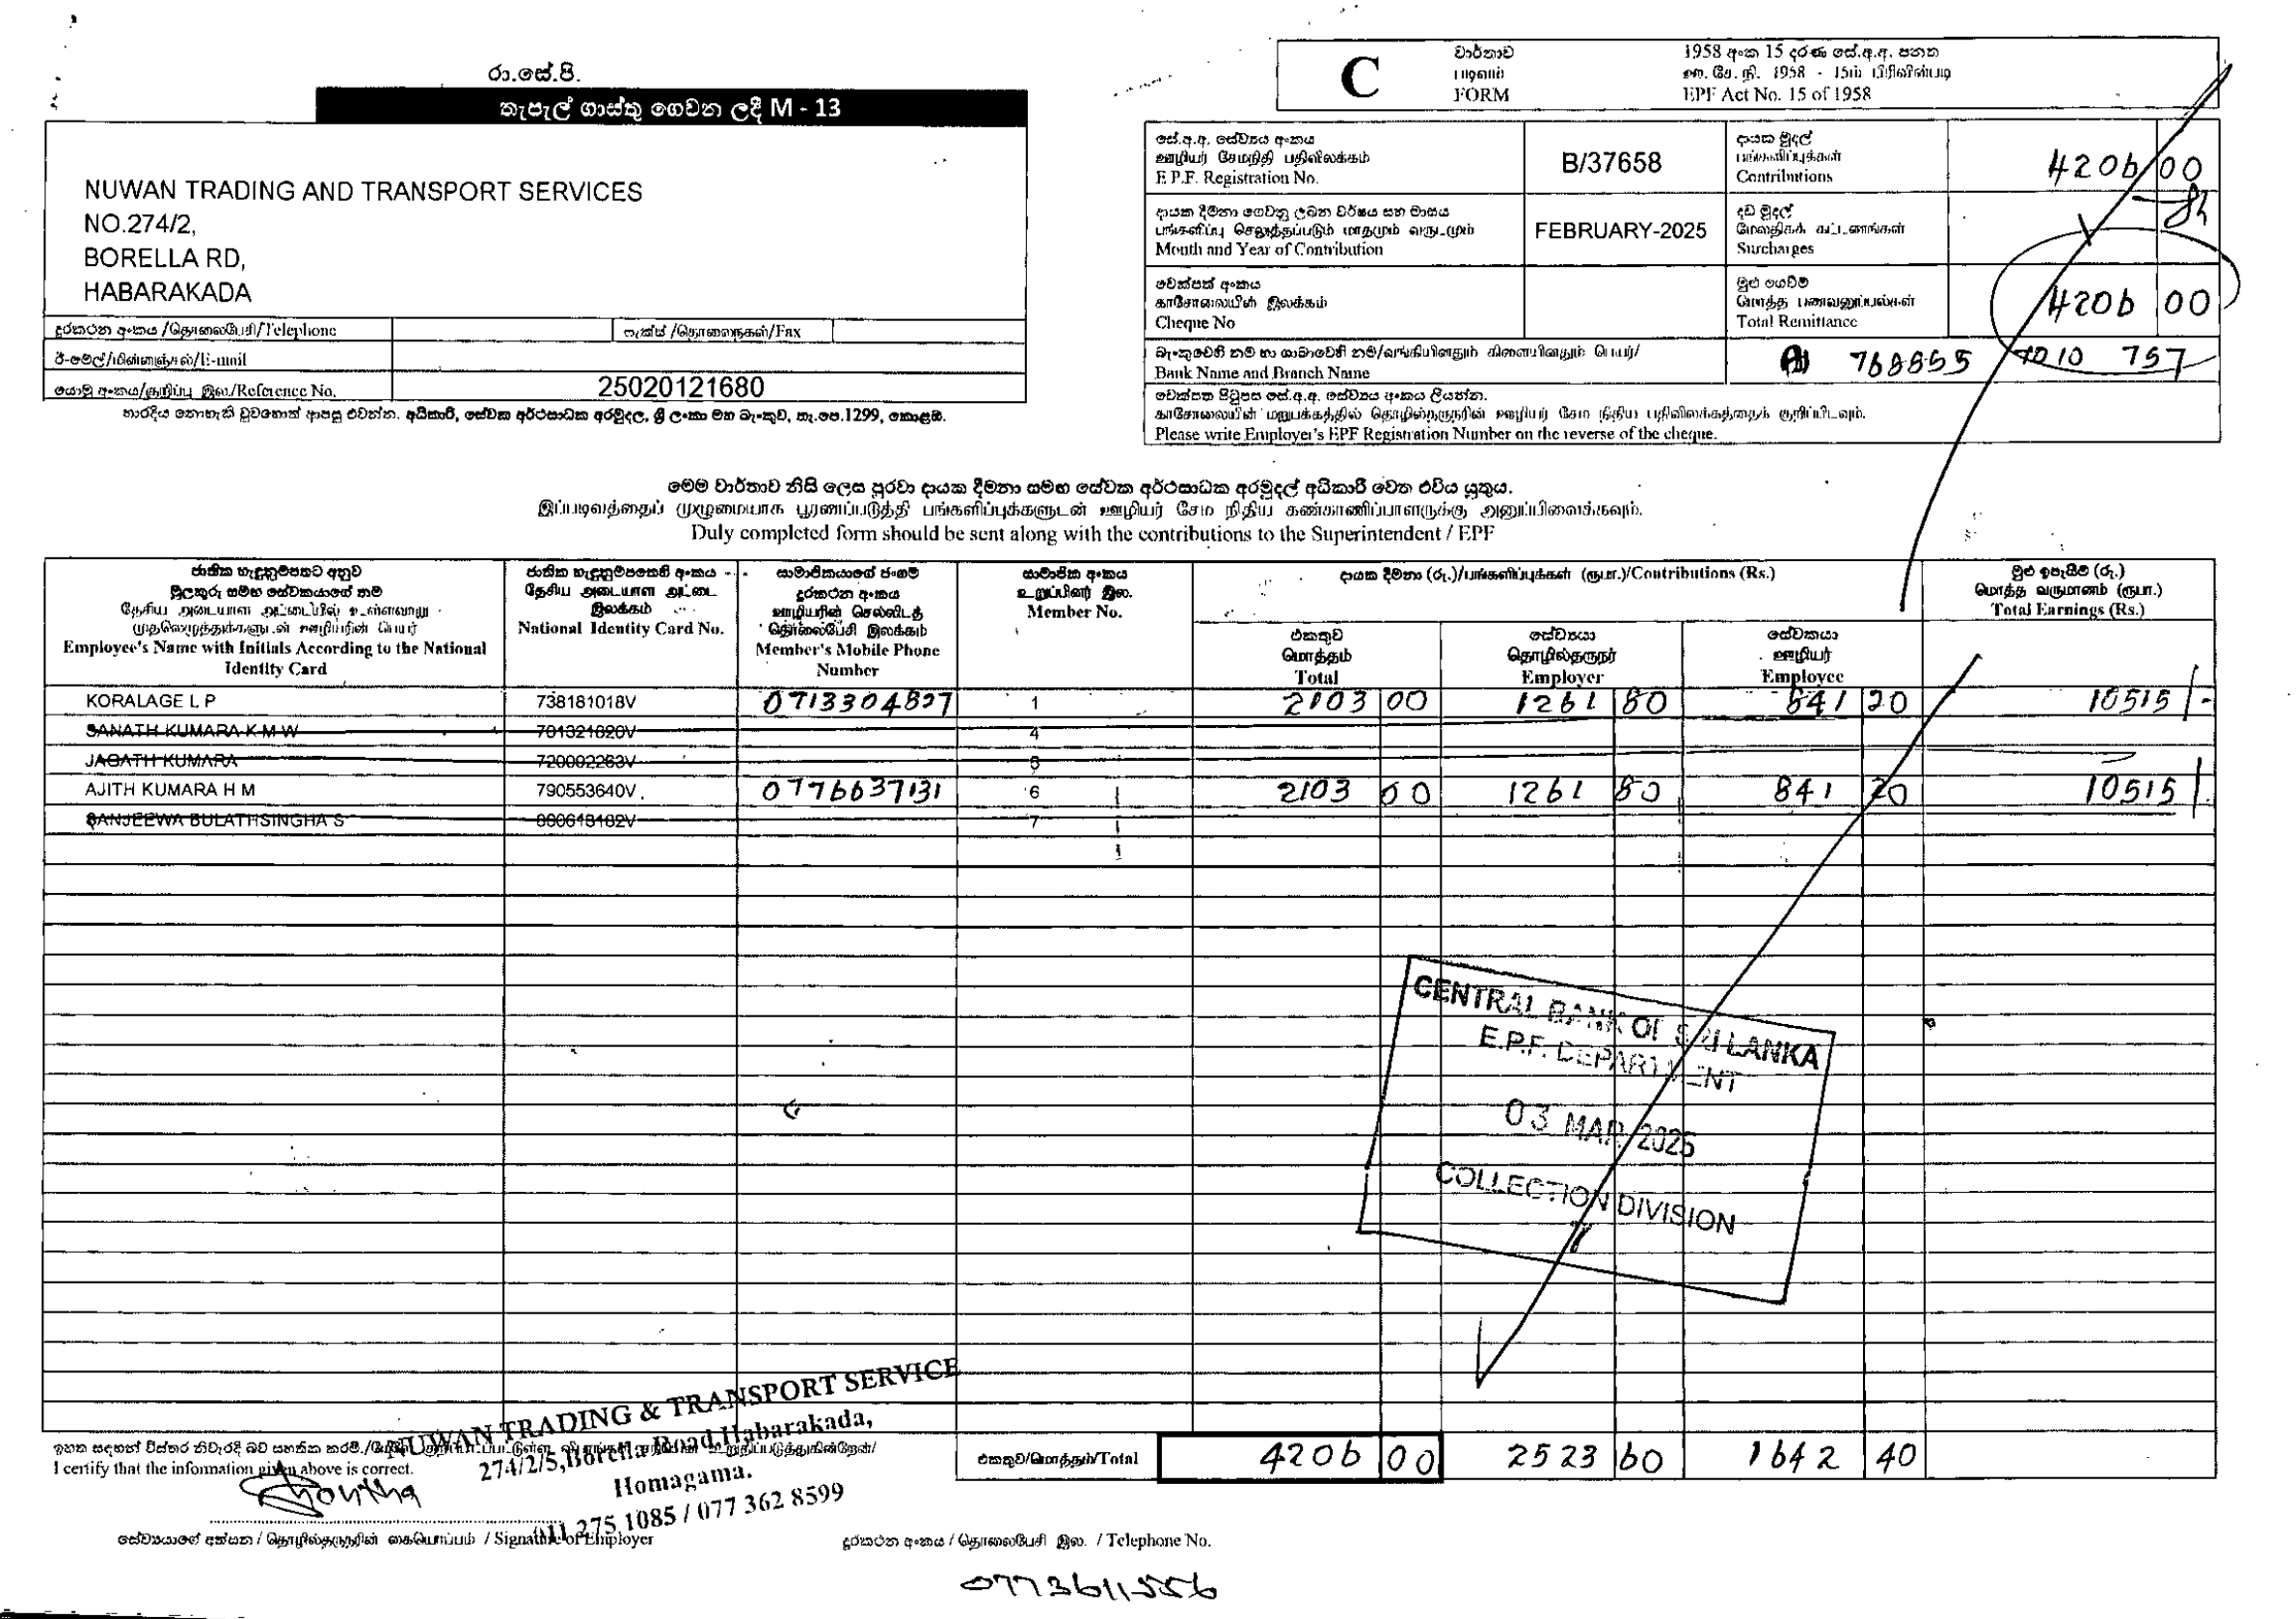 රා.සේ.පි.
තැපැල් ගාස්තු ගෙවන ලදී M - 13
C
වාර්තාව
படிவம்
FORM
1958 අංක 15 දරණ සේ.අ.අ. පනත
ஊ. சே. நி. 1958 - 15ம் பிரிவின்படி
EPF Act No. 15 of 1958
NUWAN TRADING AND TRANSPORT SERVICES
NO.274/2,
BORELLA RD,
HABARAKADA
දුරකථන අංකය /தொலைபேசி/Telephone
ෆැක්ස් /தொலைநகல்/Fax
ඊ-මේල්/மின்னஞ்சல்/E-mail
යොමු අංකය/குறிப்பு இல/Reference No. 25020121680
භාරදිය නොහැකි වුවහොත් ආපසු එවන්න. අධිකාරී, සේවක අර්ථසාධක අරමුදල, ශ්‍රී ලංකා මහ බැංකුව, තැ.පෙ.1299, කොළඹ.
සේ.අ.අ. සේව්‍ය අංකය
ஊழியர் சேமநிதி பதிவிலக்கம்
E.P.F. Registration No.
B/37658
දායක මුදල්
பங்களிப்புக்கள்
Contributions
4206 00
දායක දීමනා ගෙවනු ලබන වර්ෂය සහ මාසය
பங்களிப்பு செலுத்தப்படும் மாதமும் வருடமும்
Month and Year of Contribution
FEBRUARY-2025
දඩ මුදල්
மேலதிகக் கட்டணங்கள்
Surcharges
චෙක්පත් අංකය
காசோலையின் இலக்கம்
Cheque No
මුළු ගෙවීම්
மொத்த பணவனுப்பல்கள்
Total Remittance
4206 00
බැංකුවෙහි නම හා ශාඛාවෙහි නම/வங்கியினதும் கிளையினதும் பெயர்/
Bank Name and Branch Name
768855 7010 757
චෙක්පත පිටුපස සේ.අ.අ. සේව්‍ය අංකය ලියන්න.
காசோலையின் மறுபக்கத்தில் தொழில்தருநரின் ஊழியர் சேம நிதிய பதிவிலக்கத்தைக் குறிப்பிடவும்.
Please write Employer's EPF Registration Number on the reverse of the cheque.
මෙම වාර්තාව නිසි ලෙස පුරවා දායක දීමනා සමඟ සේවක අර්ථසාධක අරමුදල් අධිකාරී වෙත එවිය යුතුය.
இப்படிவத்தைப் முழுமையாக பூரணப்படுத்தி பங்களிப்புக்களுடன் ஊழியர் சேம நிதிய கண்காணிப்பாளருக்கு அனுப்பிவைக்கவும்.
Duly completed form should be sent along with the contributions to the Superintendent / EPF
ජාතික හැඳුනුම්පතට අනුව
මුලකුරු සමඟ සේවකයාගේ නම
தேசிய அடையாள அட்டையில் உள்ளவாறு
முதலெழுத்துக்களுடன் ஊழியரின் பெயர்
Employee's Name with Initials According to the National
Identity Card
ජාතික හැඳුනුම්පතෙහි අංකය
தேசிய அடையாள அட்டை
இலக்கம்
National Identity Card No.
සාමාජිකයාගේ ජංගම
දුරකථන අංකය
ஊழியரின் செல்லிடத்
தொலைபேசி இலக்கம்
Member's Mobile Phone
Number
සාමාජික අංකය
உறுப்பினர் இல.
Member No.
දායක දීමනා (රු.)/பங்களிப்புக்கள் (ரூபா.)/Contributions (Rs.)
එකතුව
மொத்தம்
Total
සේව්‍යයා
தொழில்தருநர்
Employer
සේවකයා
ஊழியர்
Employee
මුළු ඉපැයීම් (රු.)
மொத்த வருமானம் (ரூபா.)
Total Earnings (Rs.)
KORALAGE L P 738181018V 0713304827 1 2103 00 1261 80 841 20 10515/-
SANATH KUMARA K M W 701321820V 4
JAGATH KUMARA 720002263V 5
AJITH KUMARA H M 790553640V 0776637131 6 2103 00 1261 80 841 20 10515/-
SANJEEWA BULATHSINGHA S 860618182V 7
CENTRAL BANK OF SRI LANKA
E.P.F. DEPARTMENT
03 MAR 2025
COLLECTION DIVISION
එකතුව/மொத்தம்/Total 4206 00 2523 60 1642 40
ඉහත සඳහන් විස්තර නිවැරදි බව සහතික කරමි.
I certify that the information given above is correct.
NUWAN TRADING & TRANSPORT SERVICE
274/2/5, Borella Road, Habarakada,
Homagama.
011 275 1085 / 077 362 8599
සේව්‍යයාගේ අත්සන / தொழில்தருநரின் கையொப்பம் / Signature of Employer
දුරකථන අංකය / தொலைபேசி இல. / Telephone No.
0773611556